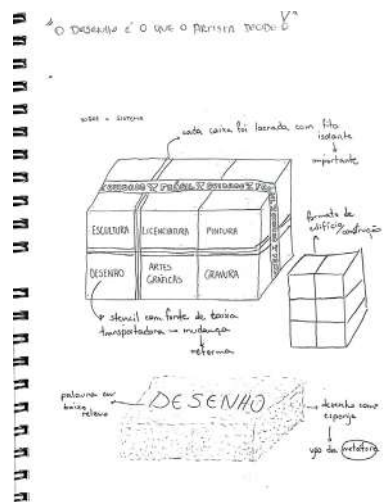 "O DESENHO É O QUE O ARTISTA DECIDE"
SOBRE O SISTEMA
cada caixa foi lacrada com fita
isolante
importante
CUIDADO FRÁGIL CUIDADO
ESCULTURA LICENCIATURA PINTURA
DESENHO ARTES GRÁFICAS GRAVURA
formato de
edifício construção
stencil com fonte de caixa
transportadora mudança
reforma
palavra em
baixo
relevo
DESENHO
desenho como
esponja
uso da metáfora